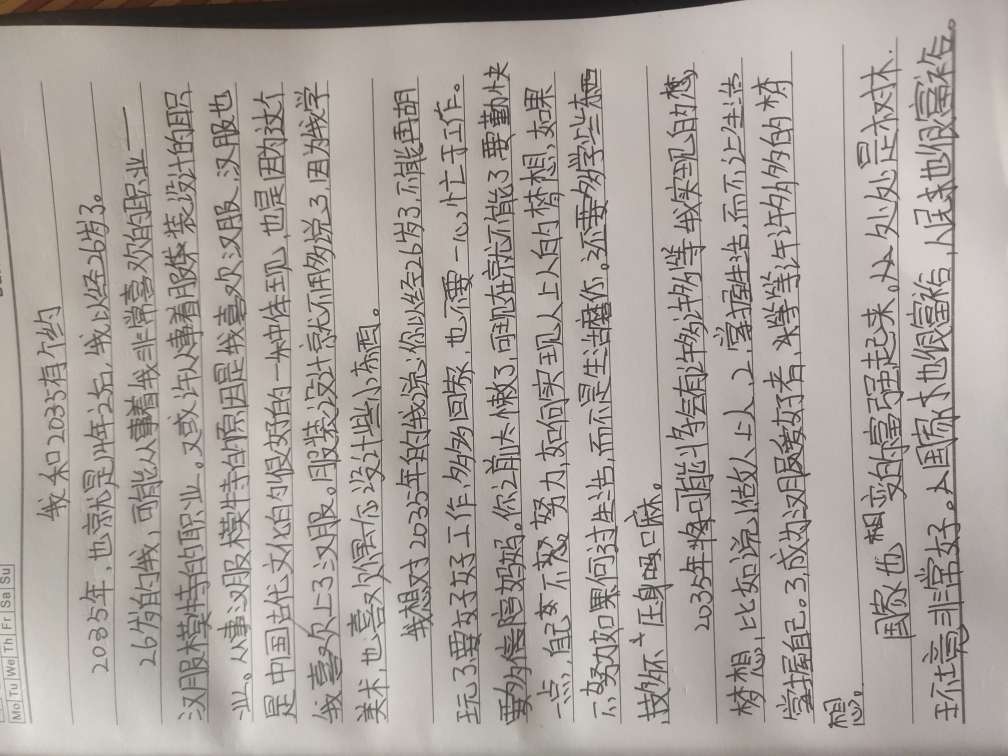 Mo Tu We Th Fr Sa Su
我和2035有个约
2035年,也就是14年之后,我以经26岁了。
26岁的我,可能从事着我非常喜欢的职业——
汉服模特的职业。又或许从事着服装设计的职
业。从事汉服模特的原因是我喜欢汉服,汉服也
是中国古代文化的很好的一种体现,也是因为这个
我喜欢上了汉服。服装设计就不用多说了,因为我学
美术,也喜欢偶尔设计些小东西。
我想对2035年的我说:你以经26岁了,不能再胡
玩了要好好工作,多多回家,也不要一心忙于工作。
要多陪陪妈妈。你之前太懒了,可现在就不能了要勤快
一点,自己要不怒努力,如何实现上人的梦想,如果
不努力如果何过生活,而不是生活磨你。还要多学些东西
技多不压身吗口麻。
2035年将可能将会有许多许多等我实现的
梦想,比如说1.做人上人,2,掌握生活,而不让生活
掌握自己。3.成为汉服爱好者,等等许许多多的梦
想。
国家也变的富强起来。从处处是
乐意非常好。从国家也很富裕,人民来也很富裕。